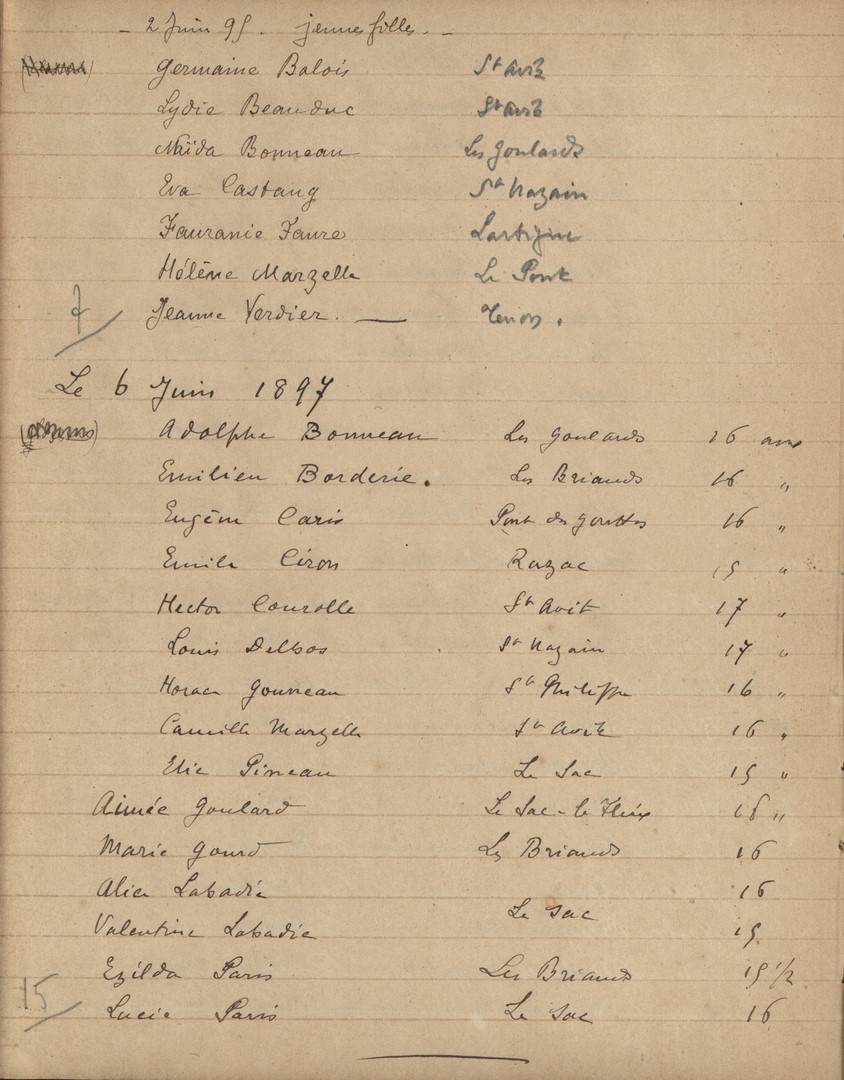 - 2 Juin 95. jeunes filles. -
Germaine Balois St Avit
Lydie Beauduc St Avit
Naïda Bonneau Les Goulards
Eva Castang St Nazain
Fauranie Faure Lartigue
Hélène Marzelle Le Pont
7 Jeanne Verdier. —
Le 6 Juin 1897
Adolphe Bonneau Les Goulards 16 ans
Emilien Borderie. Les Briands 16 "
Eugène Caris Pont des gouttes 16 "
Emile Ciron Razac 15 "
Hector Courolle St Avit 17 "
Louis Delbos St Nazain 17 "
Horace Gouneau St Philippe 16 "
Camille Marzelle St Avit 16 "
Elie Pineau Le Sac 15 "
Aimée Goulard Le Sac - le Fleix 16 "
Marie Gourd Les Briands 16
Alice Labadie 16
Le Sac
Valentine Labadie 15
Ezilda Paris Les Briands 15 1/2
15 Lucie Paris Le Sac 16